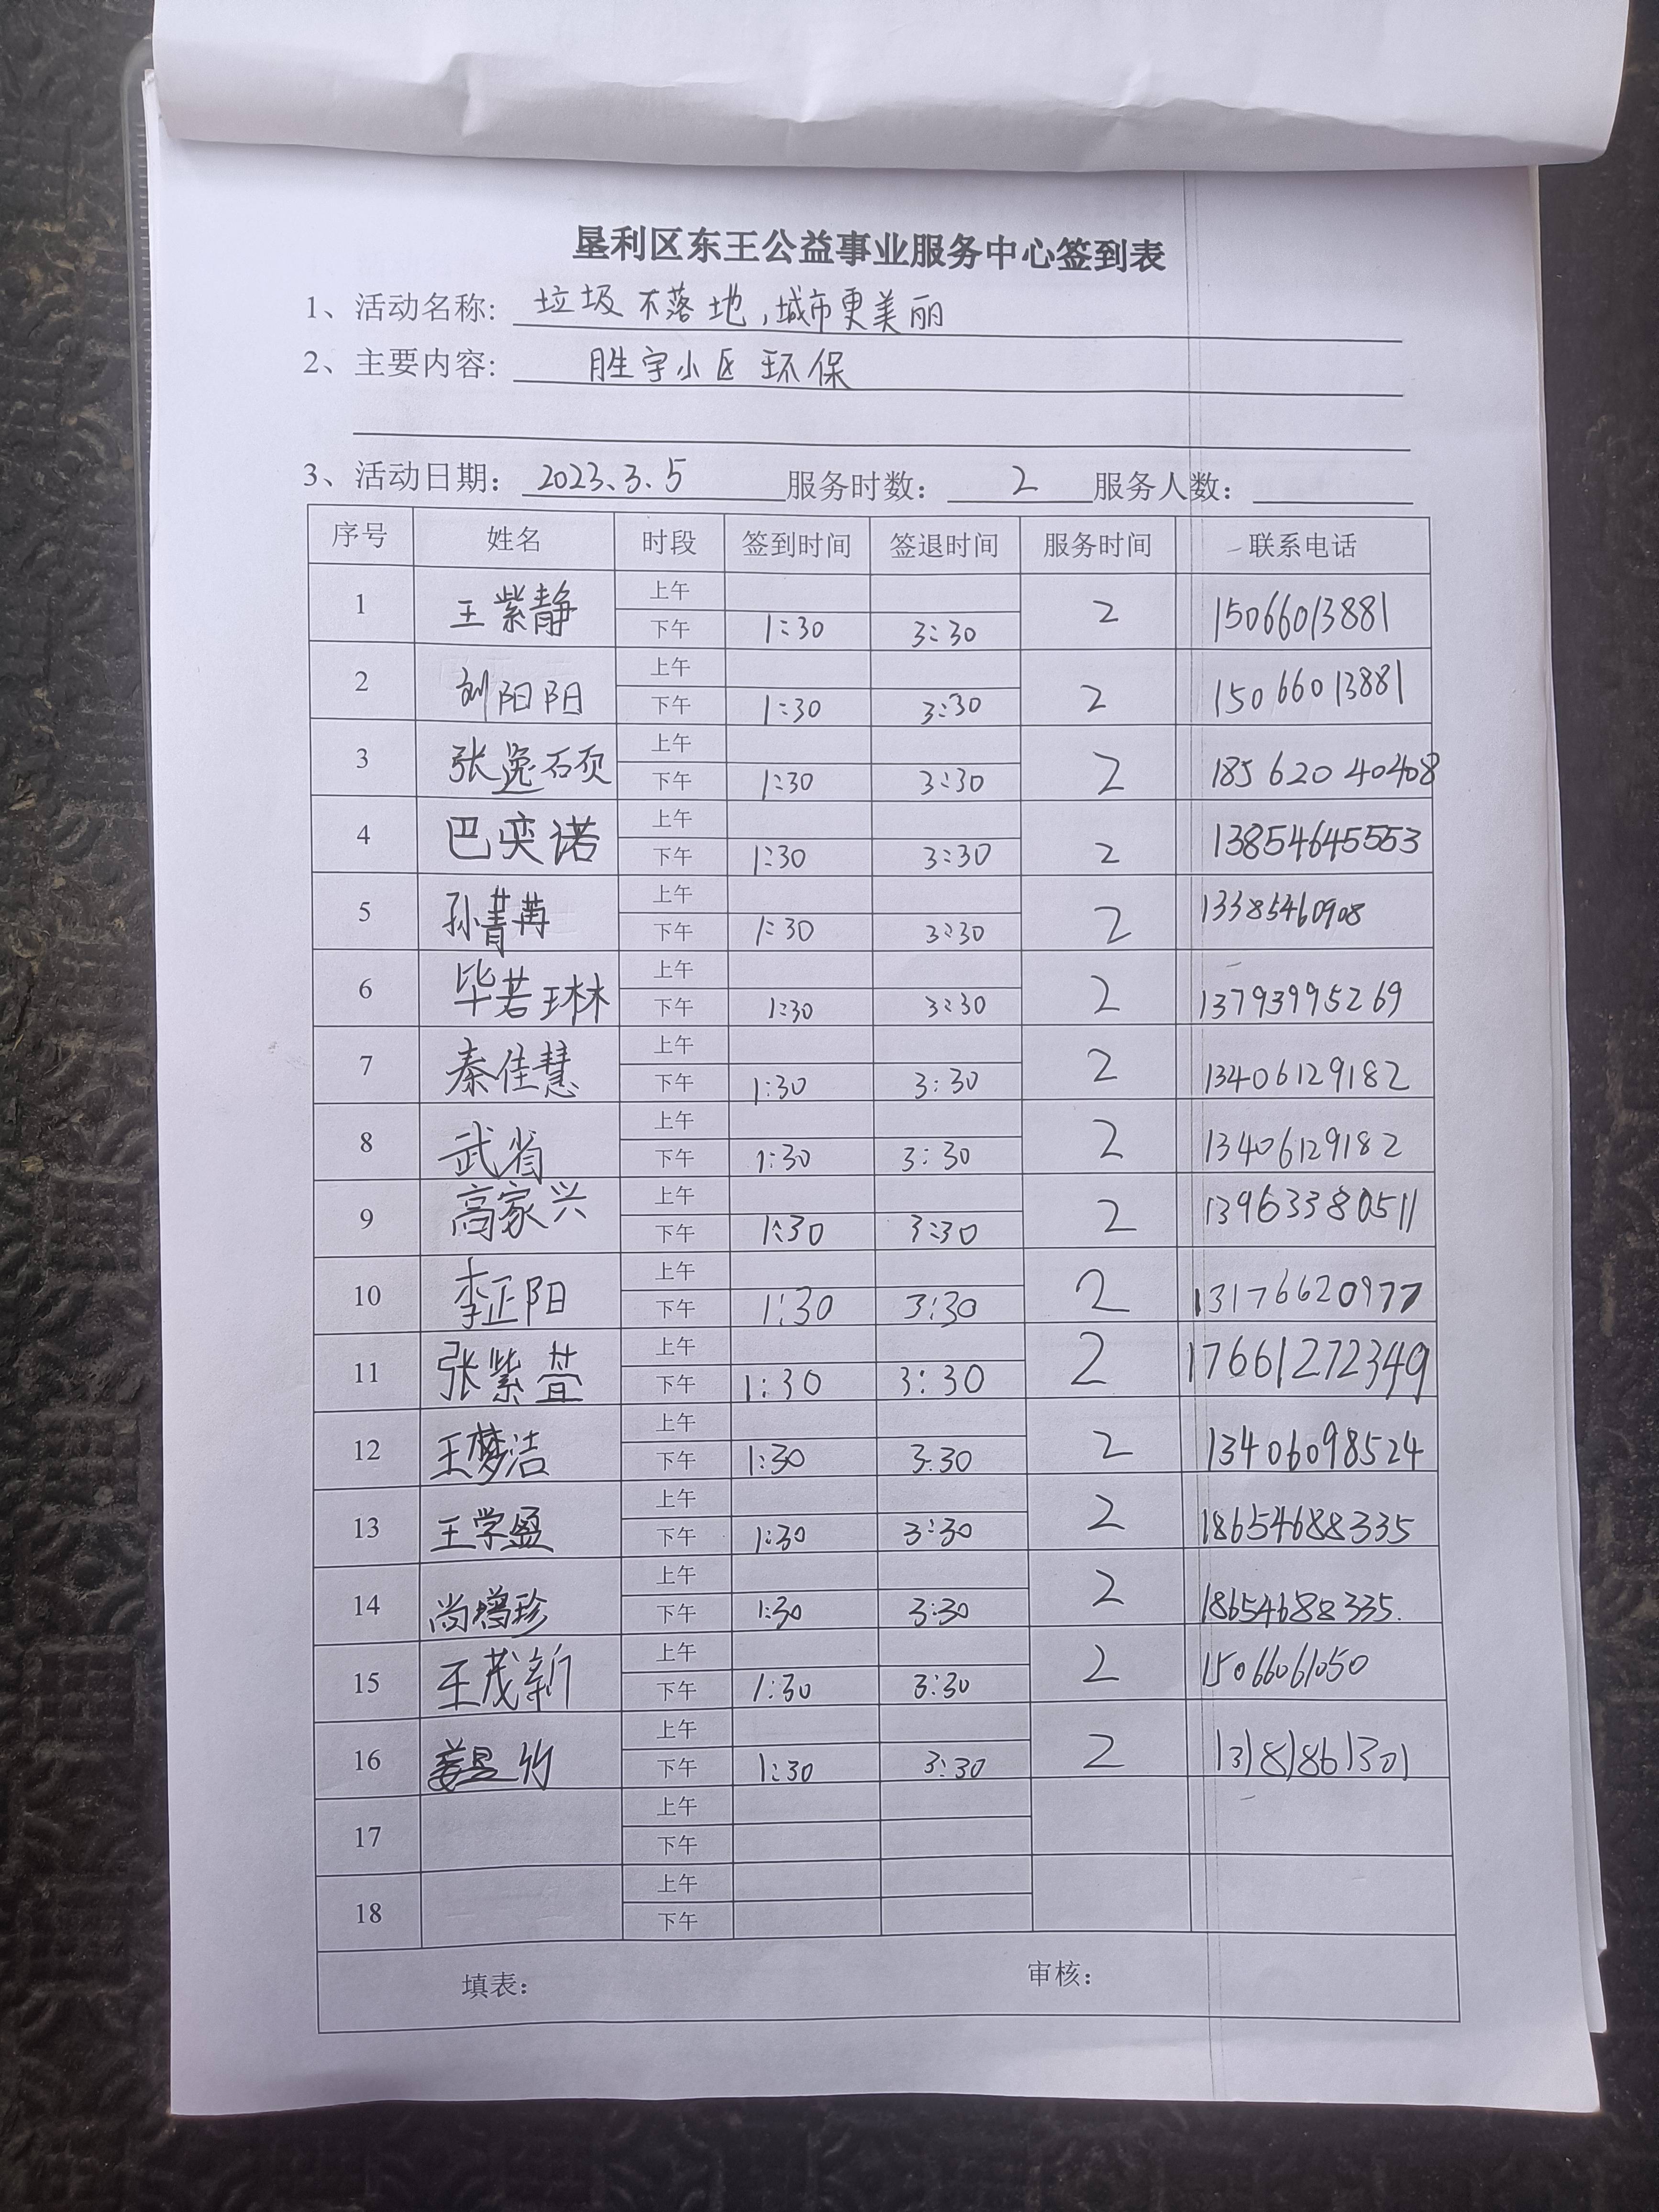 垦利区东王公益事业服务中心签到表
1、活动名称: 垃圾不落地,城市更美丽
2、主要内容: 胜宇小区环保
3、活动日期: 2023.3.5 服务时数: 2 服务人数:
序号 姓名 时段 签到时间 签退时间 服务时间 联系电话
1 王紫静 上午 2 15066013881
下午 1:30 3:30
2 刘阳阳 上午 2 15066013881
下午 1:30 3:30
3 张逸硕 上午 2 18562040408
下午 1:30 3:30
4 巴奕诺 上午 2 13854645553
下午 1:30 3:30
5 孙菁苒 上午 2 13385460908
下午 1:30 3:30
6 毕若琳 上午 2 13793995269
下午 1:30 3:30
7 秦佳慧 上午 2 13406129182
下午 1:30 3:30
8 武省 上午 2 13406129182
下午 1:30 3:30
9 高家兴 上午 2 13963380511
下午 1:30 3:30
10 李正阳 上午 2 13176620977
下午 1:30 3:30
11 张紫萱 上午 2 17661272349
下午 1:30 3:30
12 王梦洁 上午 2 13406098524
下午 1:30 3:30
13 王学盈 上午 2 18654688335
下午 1:30 3:30
14 尚增珍 上午 2 18654688335.
下午 1:30 3:30
15 王茂新 上午 2 15066061050
下午 1:30 3:30
16 姜昱竹 上午 2 13181861301
下午 1:30 3:30
17 上午
下午
18 上午
下午
填表: 审核: